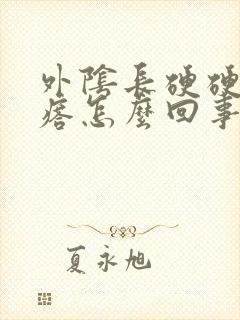 外陰長硬硬
痞怎麼回事
夏永旭